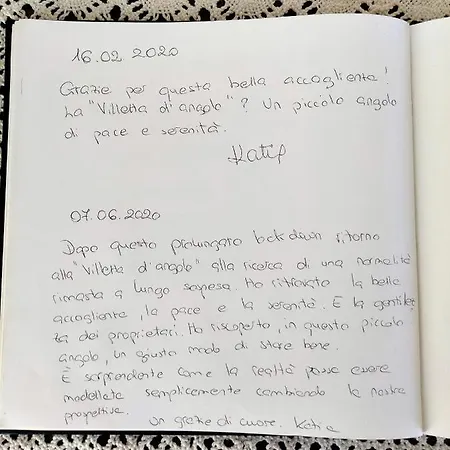 16.02.2020
Grazie per questa bella accoglienza!
La "Villetta d'angolo"? Un piccolo angolo
di pace e serenità.
Katia
07.06.2020
Dopo questo prolungato lockdown ritorno
alla "Villetta d'angolo" alla ricerca di una normalità
rimasta a lungo sospesa. Ho ritrovato la bella
accoglienza, la pace e la serenità. E la gentilez
za dei proprietari. Ho riscoperto, in questo piccolo
angolo, un giusto modo di stare bene.
È sorprendente come la realtà possa essere
modellata semplicemente cambiando la nostra
prospettiva.
Un grazie di cuore. Katia